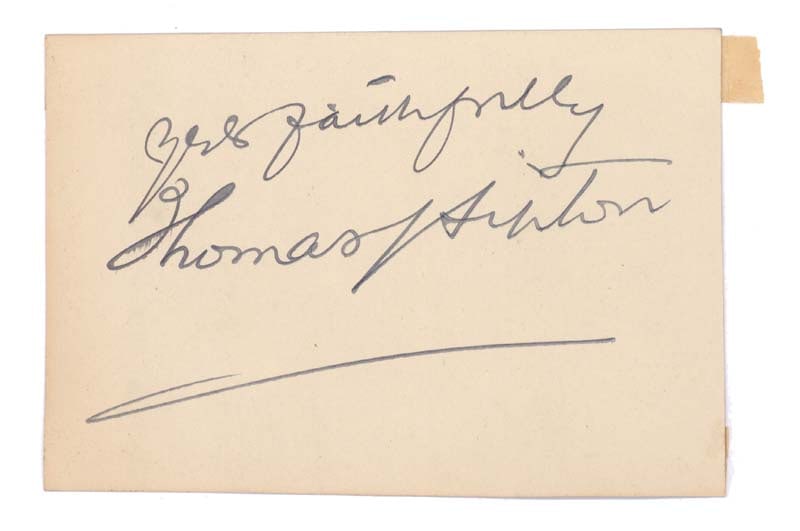 Yrs faithfully
Thomas J Lipton